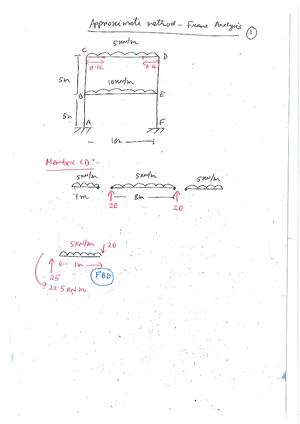 Approximate method - Frame Analysis
1
5kN/m
C
D
0.1L
0.1L
5m
10kN/m
B
E
5m
A
F
10m
Member CD:-
5kN/m
5kN/m
5kN/m
1m
8m
20
20
5kN/m
20
1m
25
22.5 kN m
FBD